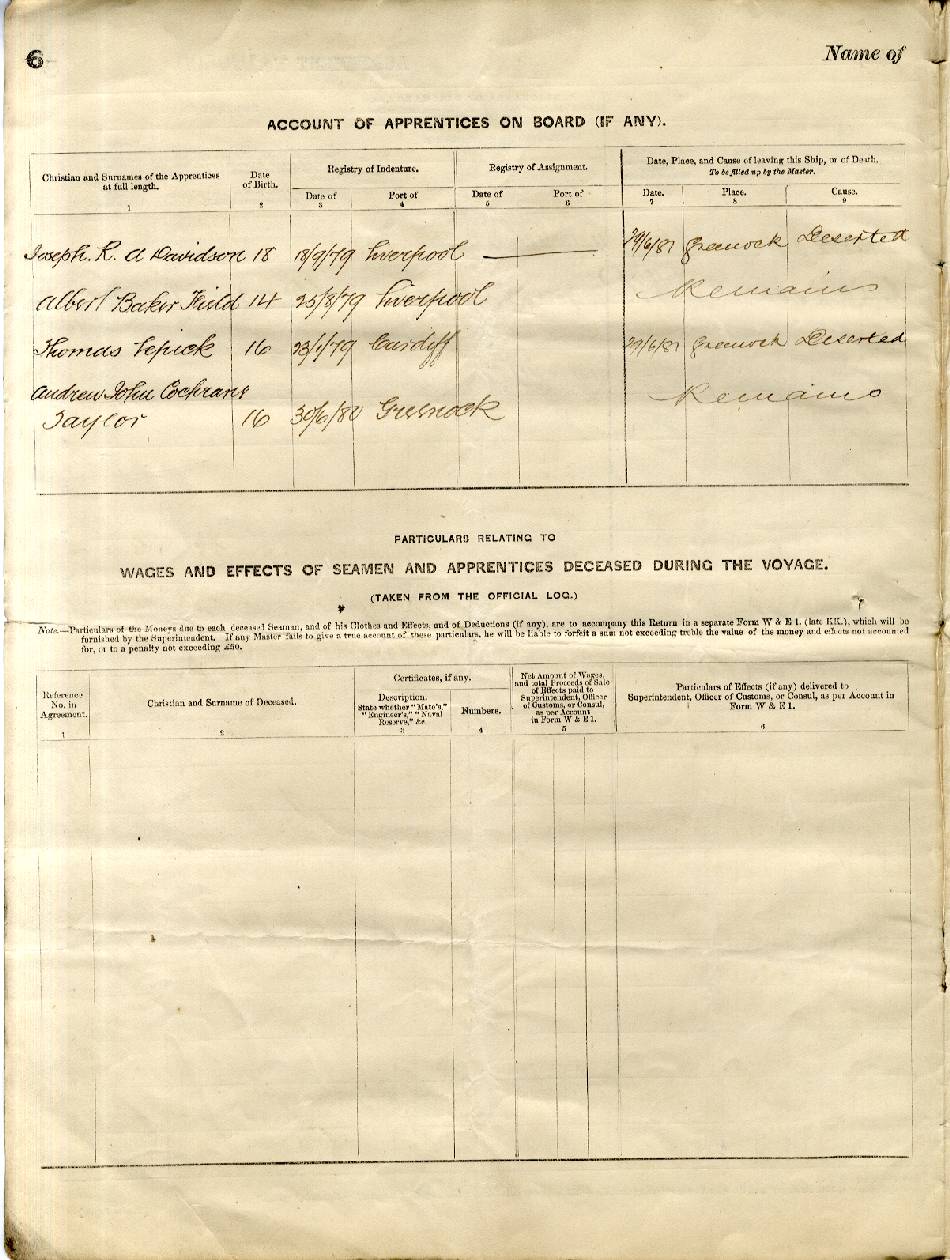 6
Name of
ACCOUNT OF APPRENTICES ON BOARD (IF ANY).
Christian and Surnames of the Apprentices at full length.
Date of Birth.
Registry of Indenture.
Registry of Assignment.
Date, Place, and Cause of leaving this Ship, or of Death.
To be filled up by the Master.
Date of
Port of
Date of
Port of
Date.
Place.
Cause.
1 2 3 4 5 6 7 8 9
Joseph. R. A Davidson 18 18/9/79 Liverpool 29/6/81 Greenock Deserted
Albert Baker Field 14 25/8/79 Liverpool Remains
Thomas 16 23/1/79 Cardiff 29/6/81 Greenock Deserted
Andrew John Cochrane
Taylor 16 30/6/80 Greenock Remains
PARTICULARS RELATING TO
WAGES AND EFFECTS OF SEAMEN AND APPRENTICES DECEASED DURING THE VOYAGE.
(TAKEN FROM THE OFFICIAL LOG.)
Note.—Particulars of the Moneys due to each deceased Seaman, and of his Clothes and Effects, and of Deductions (if any), are to accompany this Return in a separate Form W & E 1. (late KK.), which will be
furnished by the Superintendent. If any Master fails to give a true account of these particulars, he will be liable to forfeit a sum not exceeding treble the value of the money and effects not accounted
for, or to a penalty not exceeding £50.
Reference No. in Agreement.
Christian and Surname of Deceased.
Certificates, if any.
Description.
State whether "Mate's," "Engineer's," "Naval Reserve," &c.
Numbers.
Net Amount of Wages, and total Proceeds of Sale of Effects paid to Superintendent, Officer of Customs, or Consul, as per Account in Form W & E 1.
Particulars of Effects (if any) delivered to
Superintendent, Officer of Customs, or Consul, as per Account in
Form W & E 1.
1 2 3 4 5 6